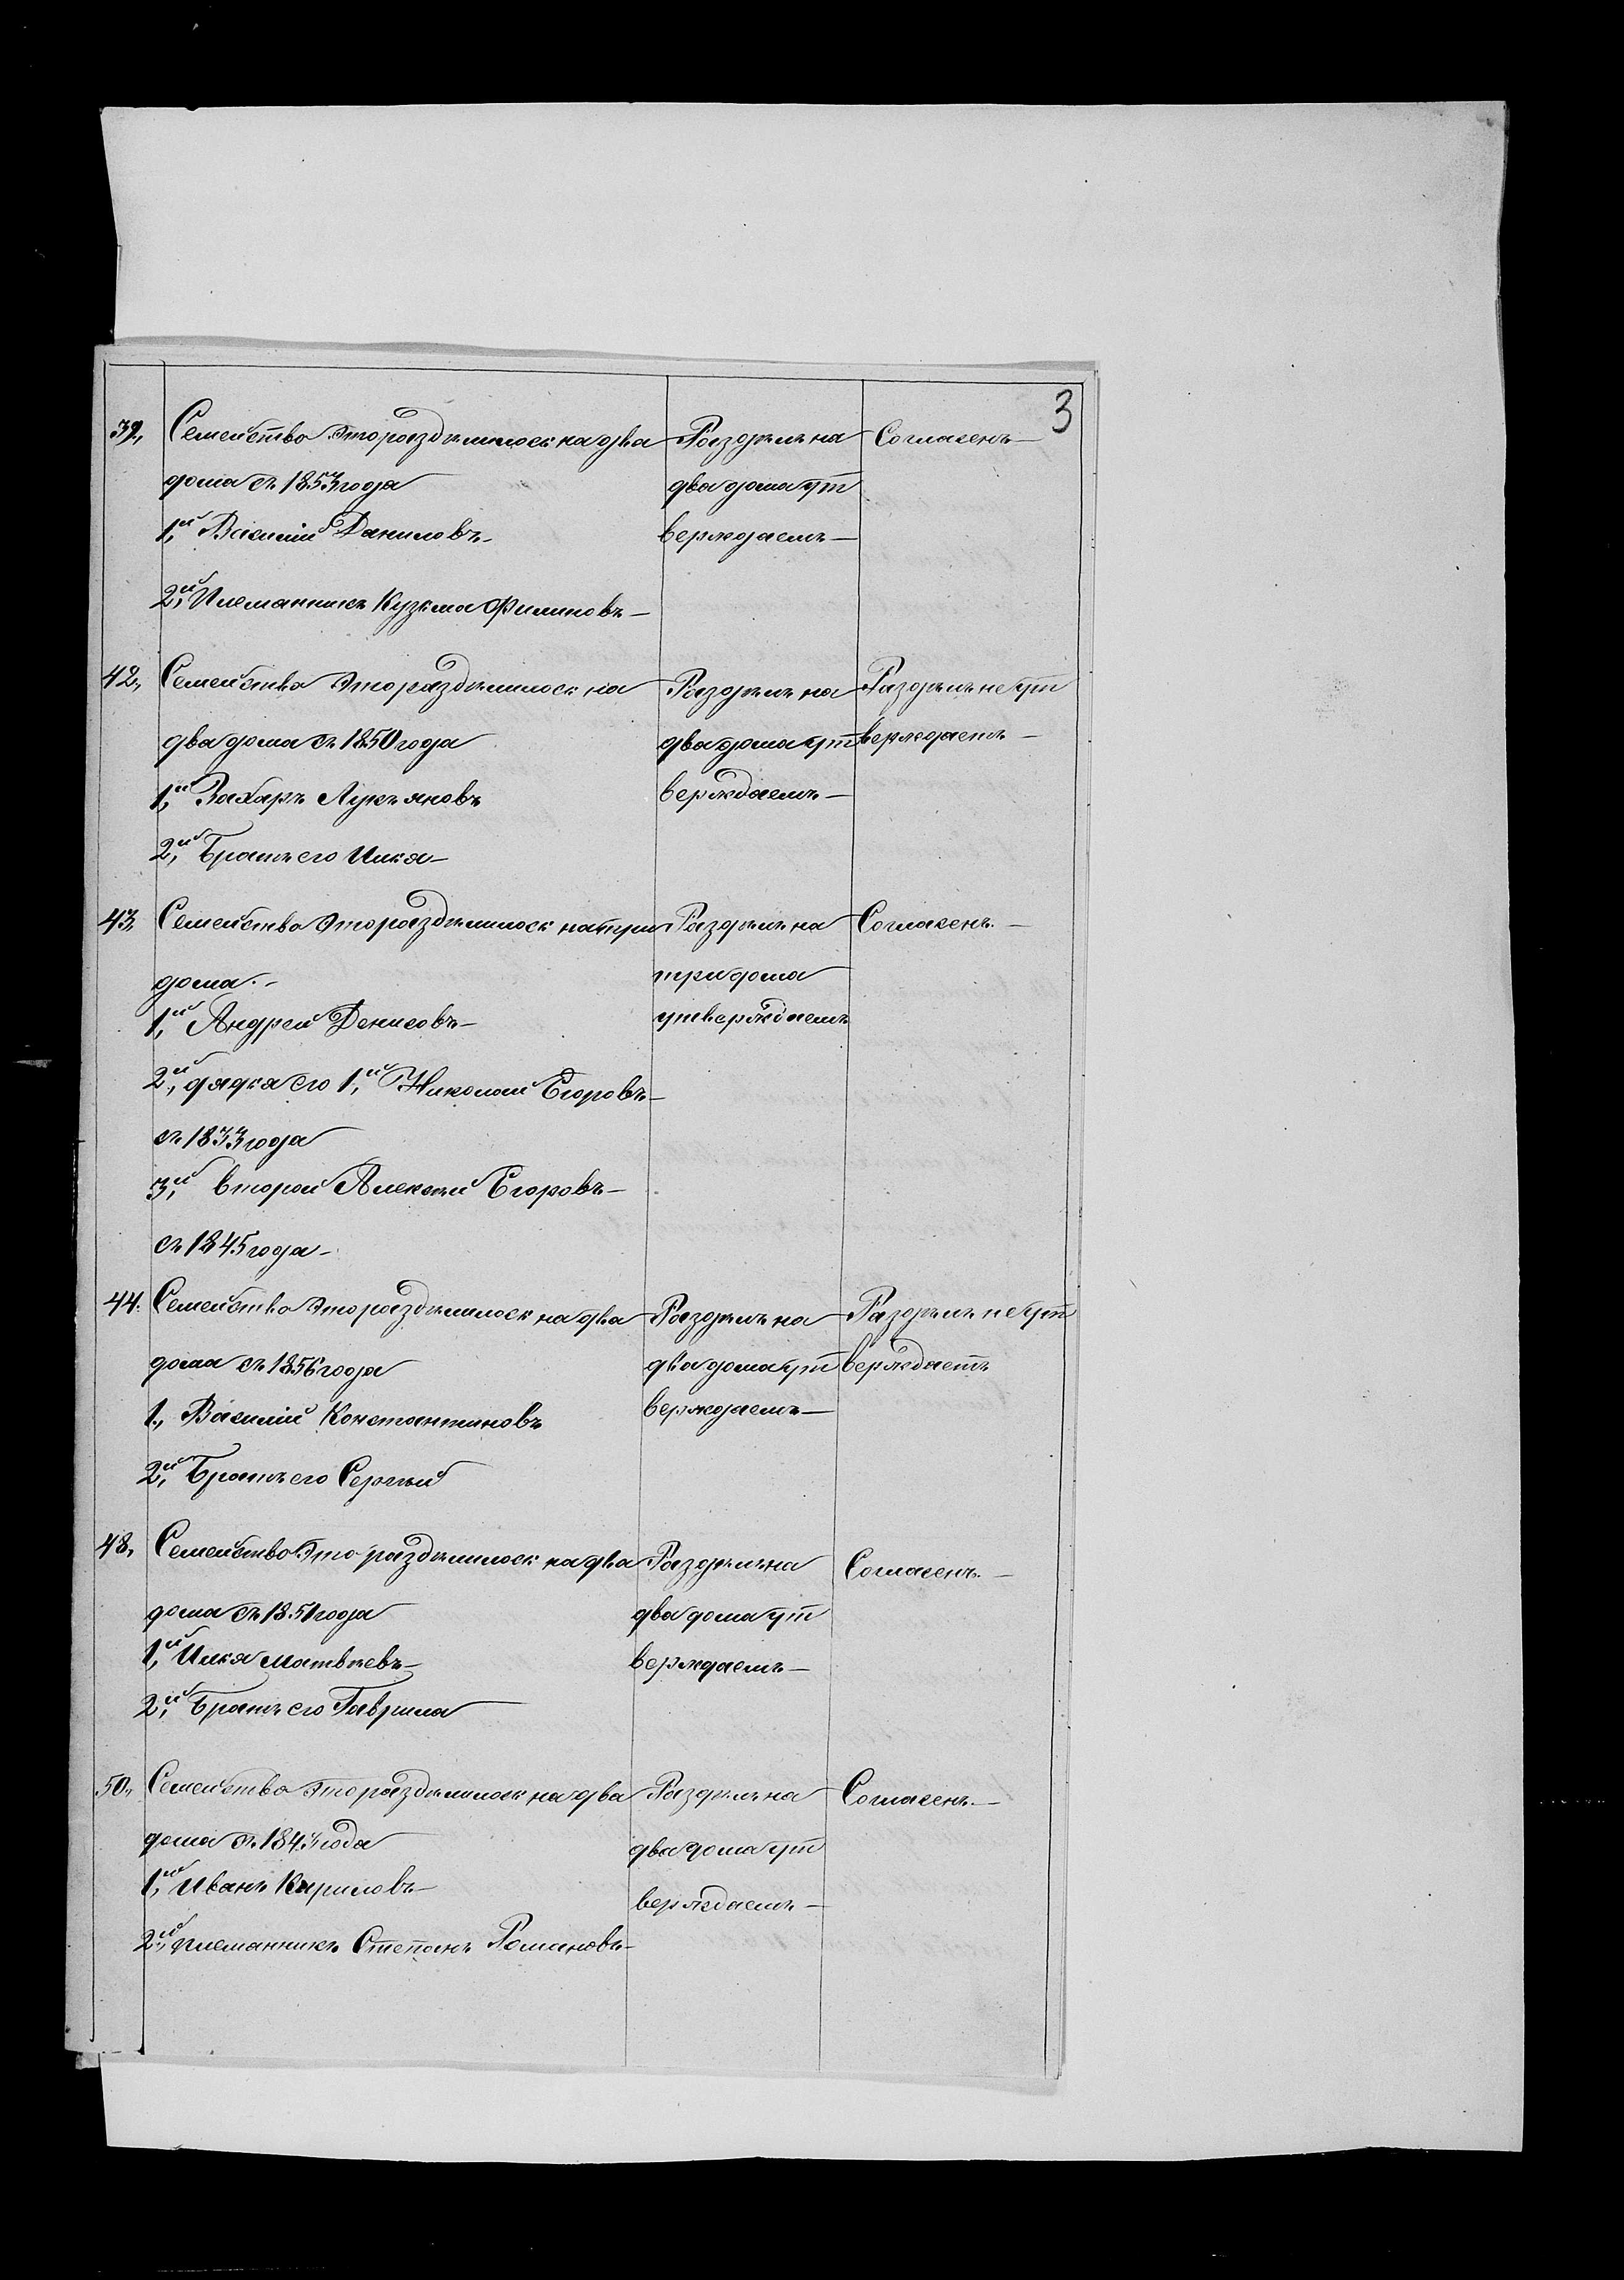 3
39, Семейство Это раздѣлилось на два Раздѣлъ на Согласенъ—
дома съ 1853 года два дома ут
1,й Василій Даниловъ— верждаемъ—
2,й Племянникъ Кузьма Филиповъ—
42, Семейство Это раздѣлилось на Раздѣлъ на Раздѣлъ не ут
два дома съ 1850 года два дома ут верждаетъ—
1,й Захаръ Лукъяновъ верждаемъ—
2,й Братъ его Илья—
43, Семейство Это раздѣлилось на три Раздѣлъ на Согласенъ.—
дома.— три дома
1,й Андрей Денисовъ— утверждаемъ
2,й дядья его 1,й Николай Егоровъ—
съ 1833 года
3,й второй Алексѣй Егоровъ—
съ 1845 года—
44. Семейство Это раздѣлилось на два Раздѣлъ на Раздѣлъ не ут
дома съ 1856 года два дома ут верждаетъ
1., Василій Константиновъ верждаемъ—
2,й Братъ его Сергѣй
48, Семейство Это раздѣлилось на два Раздѣлъ на Согласенъ.—
дома съ 1851 года два дома ут
1,й Илья Матвѣевъ— верждаемъ—
2,й Братъ его Гаврила
50, Семейство Это раздѣлилось на два Раздѣлъ на Согласенъ.—
дома съ года два дома ут
1,й Иванъ Кириловъ— верждаемъ—
2,й племянникъ Степанъ Романовъ—